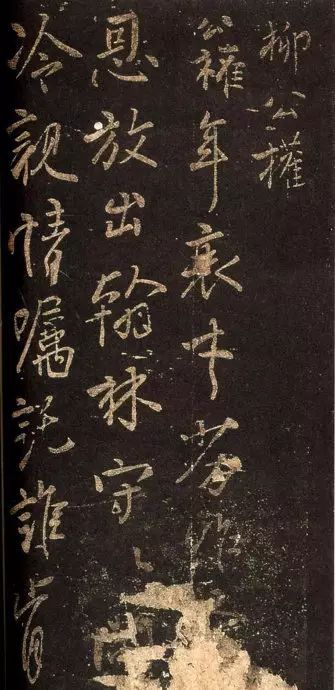 柳公權
公權年衰才劣昨
恩放出翰林守
冷親情囑託誰肯